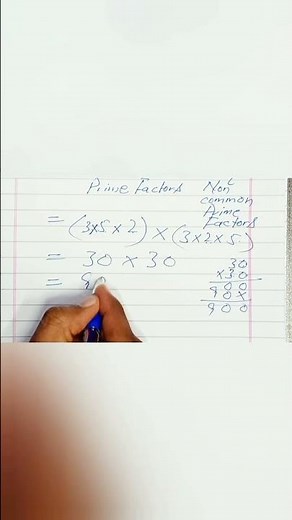 Prime Factors Non
common
Prime
Factors
= (3x5x2) x (3x2x5)
= 30 x 30
30
x30
00
90x
900
= 90